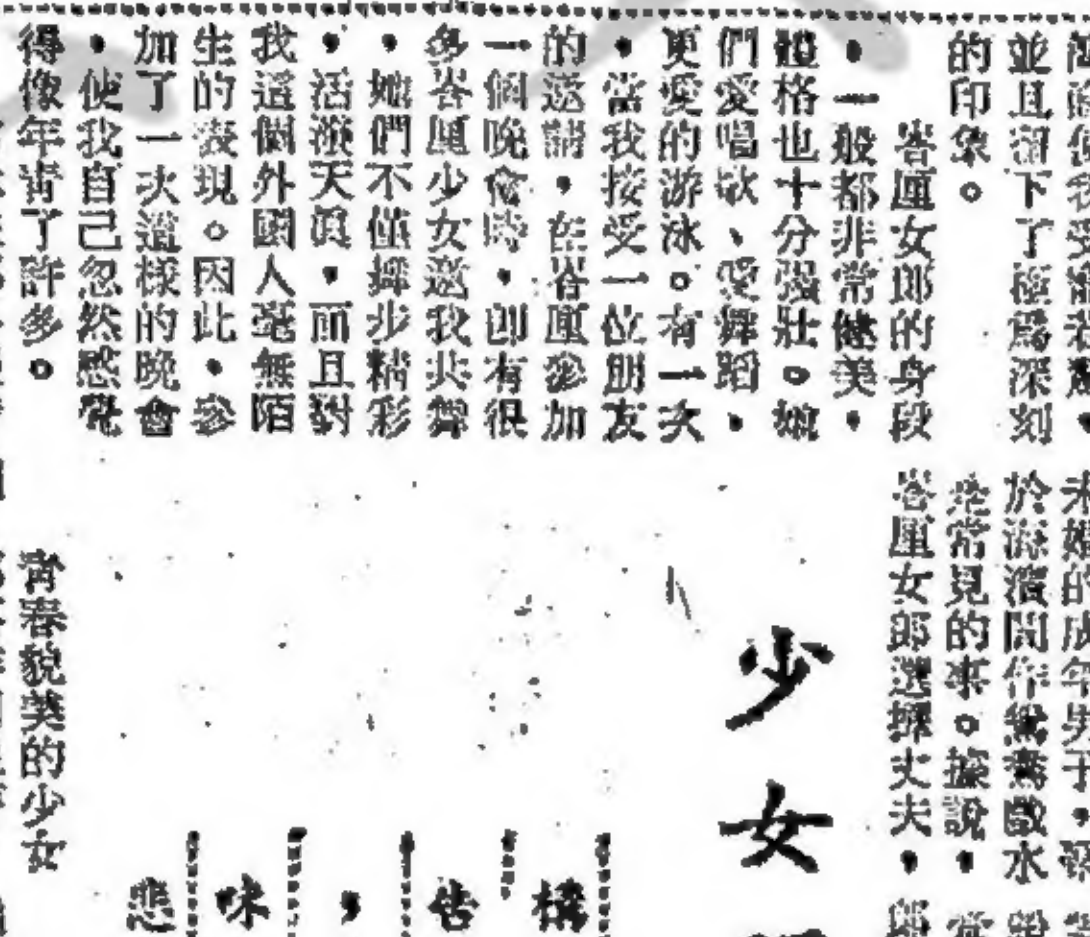 並且留下了極爲深刻
的印象。
峇厘女郎的身段
,一般都非常健美,
體格也十分强壯。她
們愛唱歌、愛舞蹈,
更愛的游泳。有一次
,當我接受一位朋友
的邀請,在峇厘參加
一個晚會時,卽有很
多峇厘少女邀我共舞
,她們不僅舞步精彩
,活潑天眞,而且對
我這個外國人毫無陌
生的表現。因此,參
加了一次這樣的晚會
,使我自己忽然感覺
得像年靑了許多。
未婚的成年男子,
於海濱間作鴛鴦戲水
是常見的事。據說,
峇厘女郎選擇丈夫,
少女
構
告
,
味
悲
靑春貌美的少女